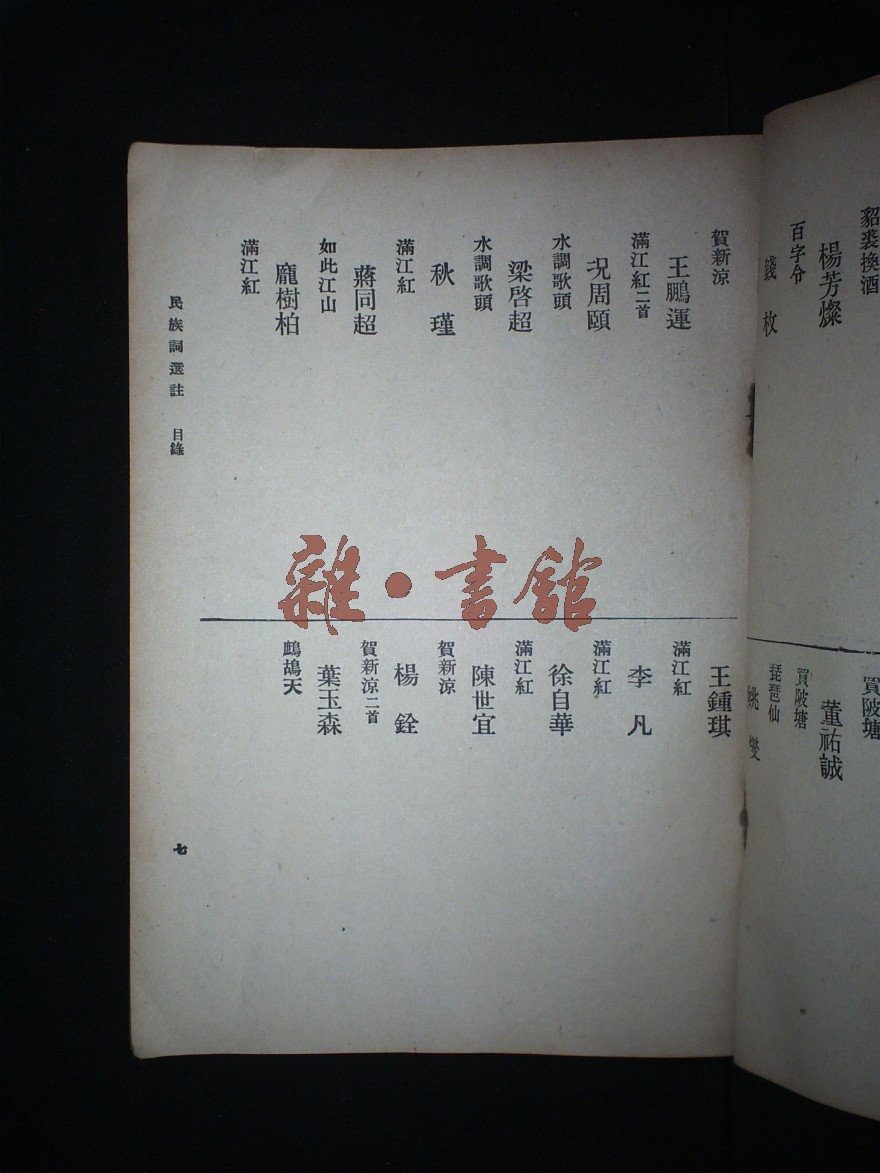 貂裘換酒
楊芳燦
百字令
錢枚
買陂塘
董祐誠
買陂塘
琵琶仙
姚燮
賀新涼
王鵬運
滿江紅二首
況周頤
水調歌頭
梁啓超
水調歌頭
秋瑾
滿江紅
蔣同超
如此江山
龐樹柏
滿江紅
王鍾琪
滿江紅
李凡
滿江紅
徐自華
滿江紅
陳世宜
賀新涼
楊銓
賀新涼二首
葉玉森
鷓鴣天
民族詞選註 目錄
七
雜·書館